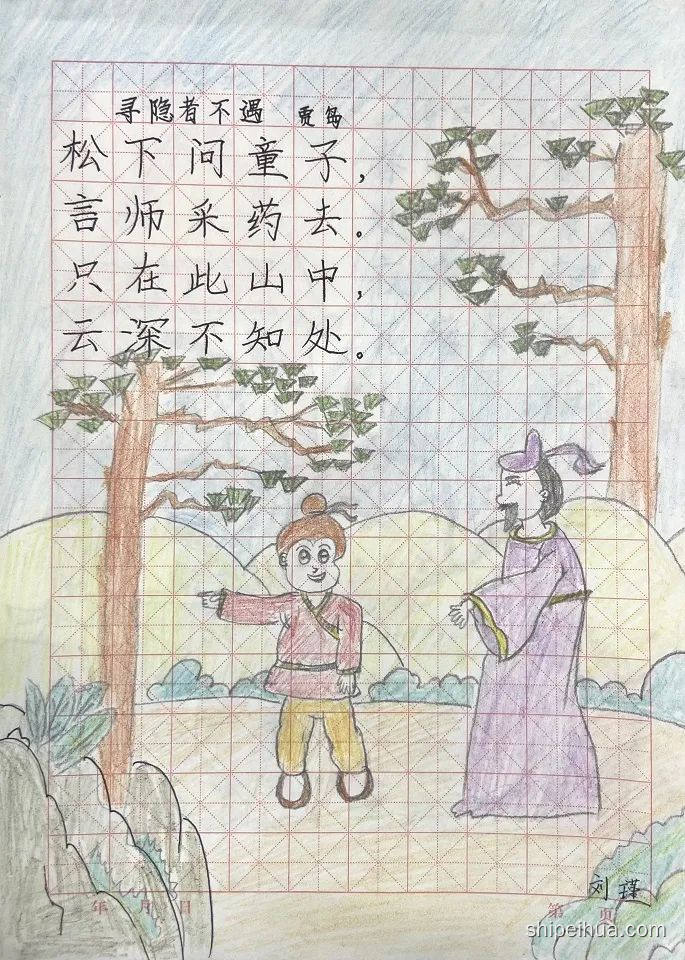 寻隐者不遇 贾岛
松下问童子，
言师采药去。
只在此山中，
云深不知处。
刘瑾
年 月 日 第 页
shipeihua.com